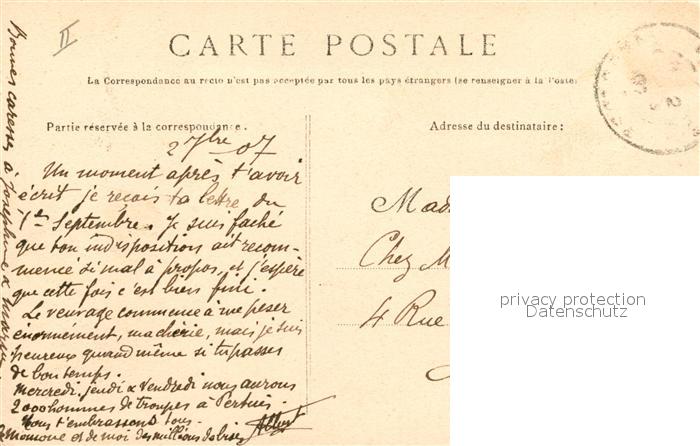 II
CARTE POSTALE
La Correspondance au recto n'est pas acceptée par tous les pays étrangers (se renseigner à la Poste)
Partie réservée à la correspondance.
Adresse du destinataire:
2 7bre 07
Un moment après t'avoir
écrit je reçois ta lettre du
1er Septembre. Je suis faché
que ton indisposition ait recom-
mencé si mal à propos, et j'espère
que cette fois c'est bien fini.
Le veuvage commence à me peser
énormément, ma chérie, mais je suis
heureux quand même si tu passes
de bon temps.
Mercredi, jeudi & Vendredi nous aurons
2000 hommes de troupes à Pertuis.
Nous t'embrassons tous.
Momone et de moi des millions de bises
Albert
Bonnes caresses à Joséphine &
Mad
Chez M
4 Rue
privacy protection
Datenschutz